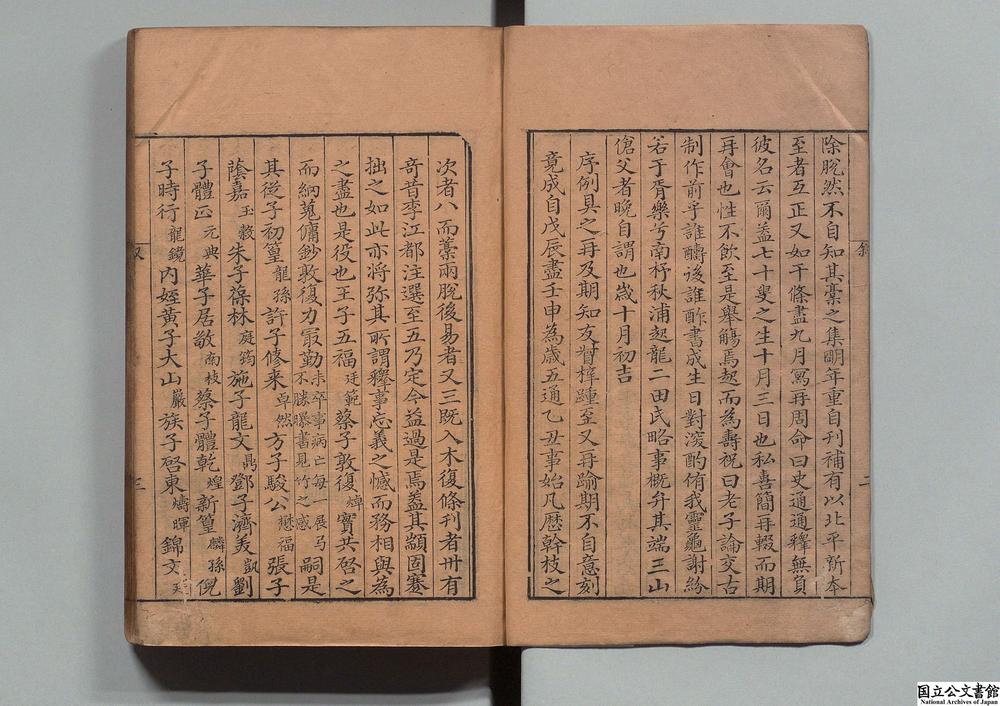 除脫然不自知其藁之集明年重自刊補有以北平新本
至者互正又如干條盡九月寫再周命曰史通通釋無負
彼名云爾葢七十叟之生十月三日也私喜簡再輟而期
再會也性不飲至是舉觴焉起而為壽祝曰老子論交古
制作前乎誰醻後誰酢書成生日對浚酌侑我靈龜謝紛
若于胥樂兮南杼秋浦起龍二田氏略事概弁其端三山
傖父者晚自謂也歲十月初吉
序例具之再及期知友督梓踵至又再踰期不自意刻
竟成自戊辰盡壬申為歲五通乙丑事始凡歷幹枝之
次者八而藁兩脫後易者又三既入木復條刊者卅有
奇昔李江都注選至五乃定今益過是焉葢其顓固蹇
拙之如此亦將弥其所謂釋事忘義之憾而務相與為
之盡也是役也王子五福廷範蔡子敦復焯實共啓之
而網蒐傭鈔敦復力最勤未卒事病亡每一展马不勝曝書見竹之感嗣是
其從子初篁龍孫許子修来卓然方子駿公懋福張子
蔭嘉玉穀朱子葆林庭筠施子龍文鼎鄧子濟美凱劉
子體正元典華子居敬南枝蔡子體乾煌新篁麟孫倪
子時行龍鏡內姪黃子大山巖族子啓東燽暉錦文
叙
二
三
国立公文書館
National Archives of Japan